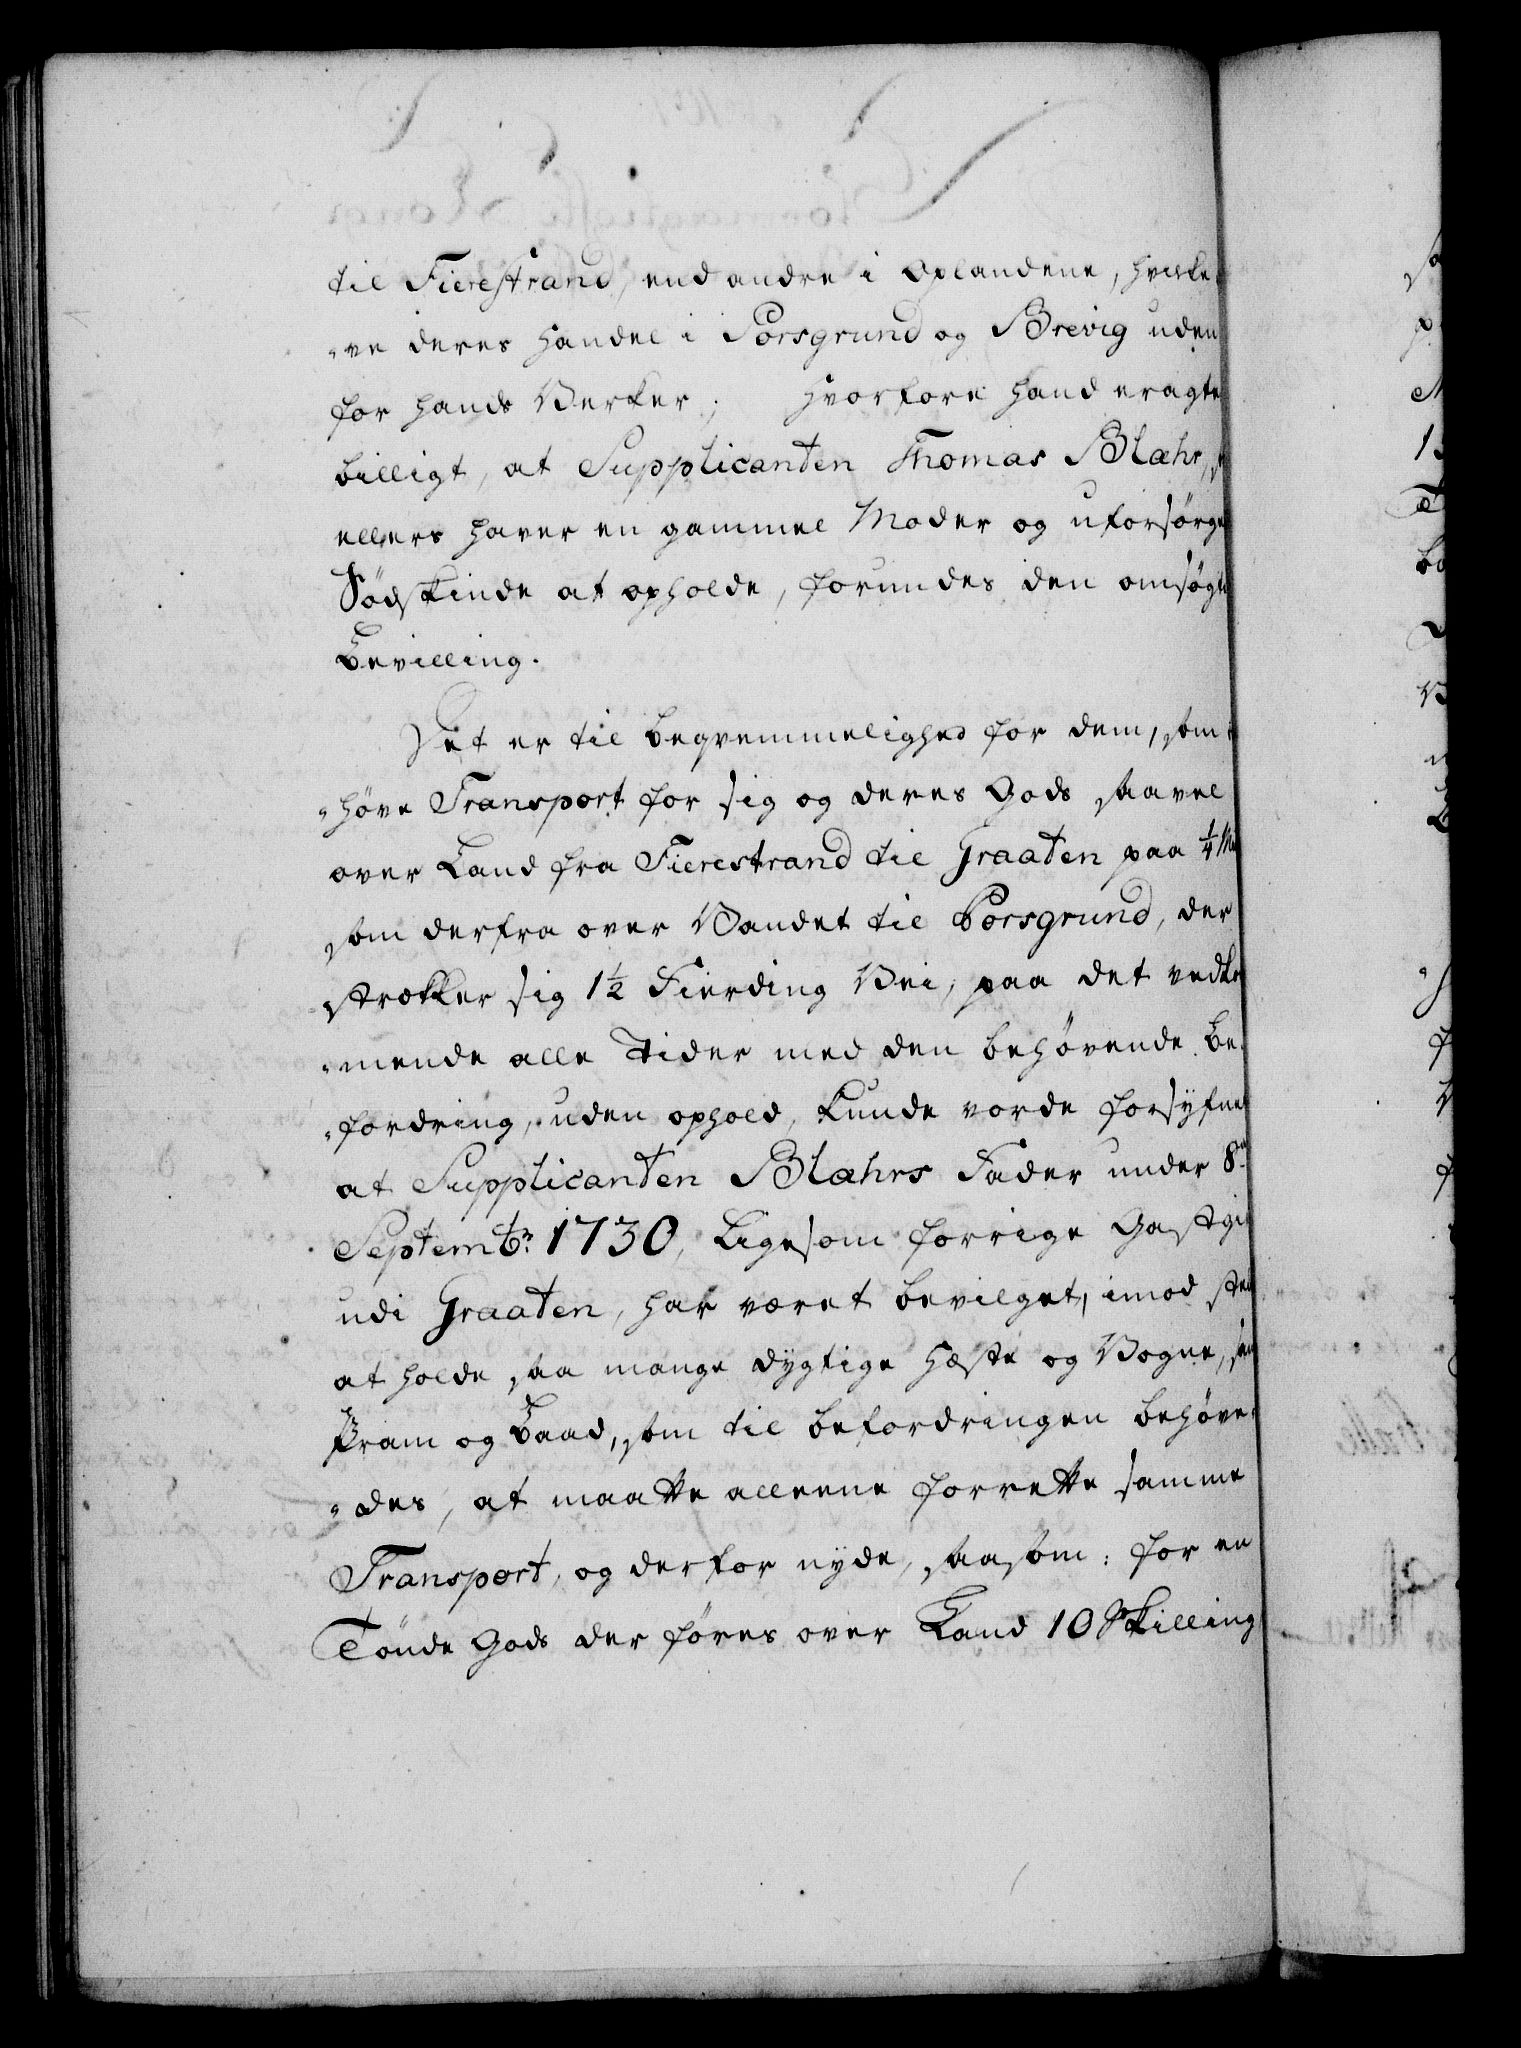 til Fierestrand, end andre i Oplandene, hvilke
ve deres Handel i Porsgrund og Brevig uden
for hands Verker; hvorfore hand eragte
billigt, at Supplicanten Thomas Blæhr,
ellers haver en gammel Moder og uforsørge
Södskinde at opholde, forundes den omsøgte
Bevilling.
Det er til beqvemmelighed for dem, som
høve Transport for sig og deres Gods saavel
over Land fra Fierestrand til Graaten paa ¼ Mi
som derfra over Vandet til Porsgrund, der
strækker sig 1½ Fierding Vei, paa det vedk
mende alle Tider med den behøvende be„
„fordring, uden ophold, kunde vorde forsyfnet
at Supplicanten Blæhrs Fader under 8
Septembr 1730, ligesom forrige Gastgi
udi Graaten, har været bevilget, imod sted
at holde saa mange dygtige Heste og Vogne, sa
Pram og Baad, som til befordringen behøve„
„des, at maatte alleene forrette samme
Transport, og derfor nyde, saasom: for en
Tönde Gods der föres over Land 10 Skilling